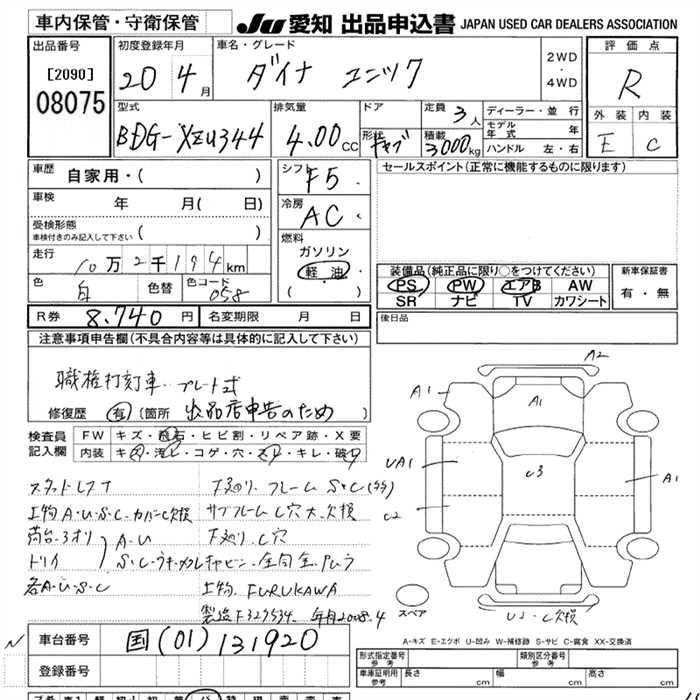 車内保管・守衛保管
JU 愛知 出品申込書 JAPAN USED CAR DEALERS ASSOCIATION
出品番号
[2090]
08075
初度登録年月
20 年 4 月
車名・グレード
ダイナ ユニック
2WD
・
4WD
評価点
R
外装 内装
E C
型式
BDG-XZU344
排気量
4.00 cc
ドア
形状
キャブ
定員 3 人
積載 3000 kg
ディーラー・並行
モデル年式 年
ハンドル 左・右
車歴 自家用・( )
車検 年 月( 日)
受検形態
車検付きのみ記入して下さい ( )
走行
10万2千194km
色 白 色替
色コード 058
シフト
F5
冷房
AC
燃料
ガソリン
軽油
( ・ )
セールスポイント(正常に機能するものに限ります)
装備品(純正品に限り○をつけてください)
PS PW エアB AW
SR ナビ TV カワシート
新車保証書
有・無
後日品
R券 8,740 円
名変期限 月 日
注意事項申告欄(不具合内容等は具体的に記入して下さい)
職権打刻車 プレート式
修復歴 有 (箇所 出品店申告のため )
検査員
記入欄
FW キズ・飛石・ヒビ割・リペア跡・X要
内装 キズ・汚レ・コゲ・穴・スレ・キレ・破レ
下廻り.フレーム S・C
上物 A・U・S・C・カバーC欠損
サブフレーム C穴大、欠損
荷台・3オリ A・U
下廻り.C穴
各A・U・S・C
上物. FURUKAWA
製造 F327534. 年月2008.4
A2
A1
A1
UA1
C3
A1
C2
スペア
U2.C欠損
A-キズ E-エクボ U-凹み W-補修跡 S-サビ C-腐食 XX-交換済
車台番号 国(01)131920
登録番号
形式指定番号
参考
類別区分番号
参考
車庫証明用
参考
長さ cm
幅 cm
高さ cm